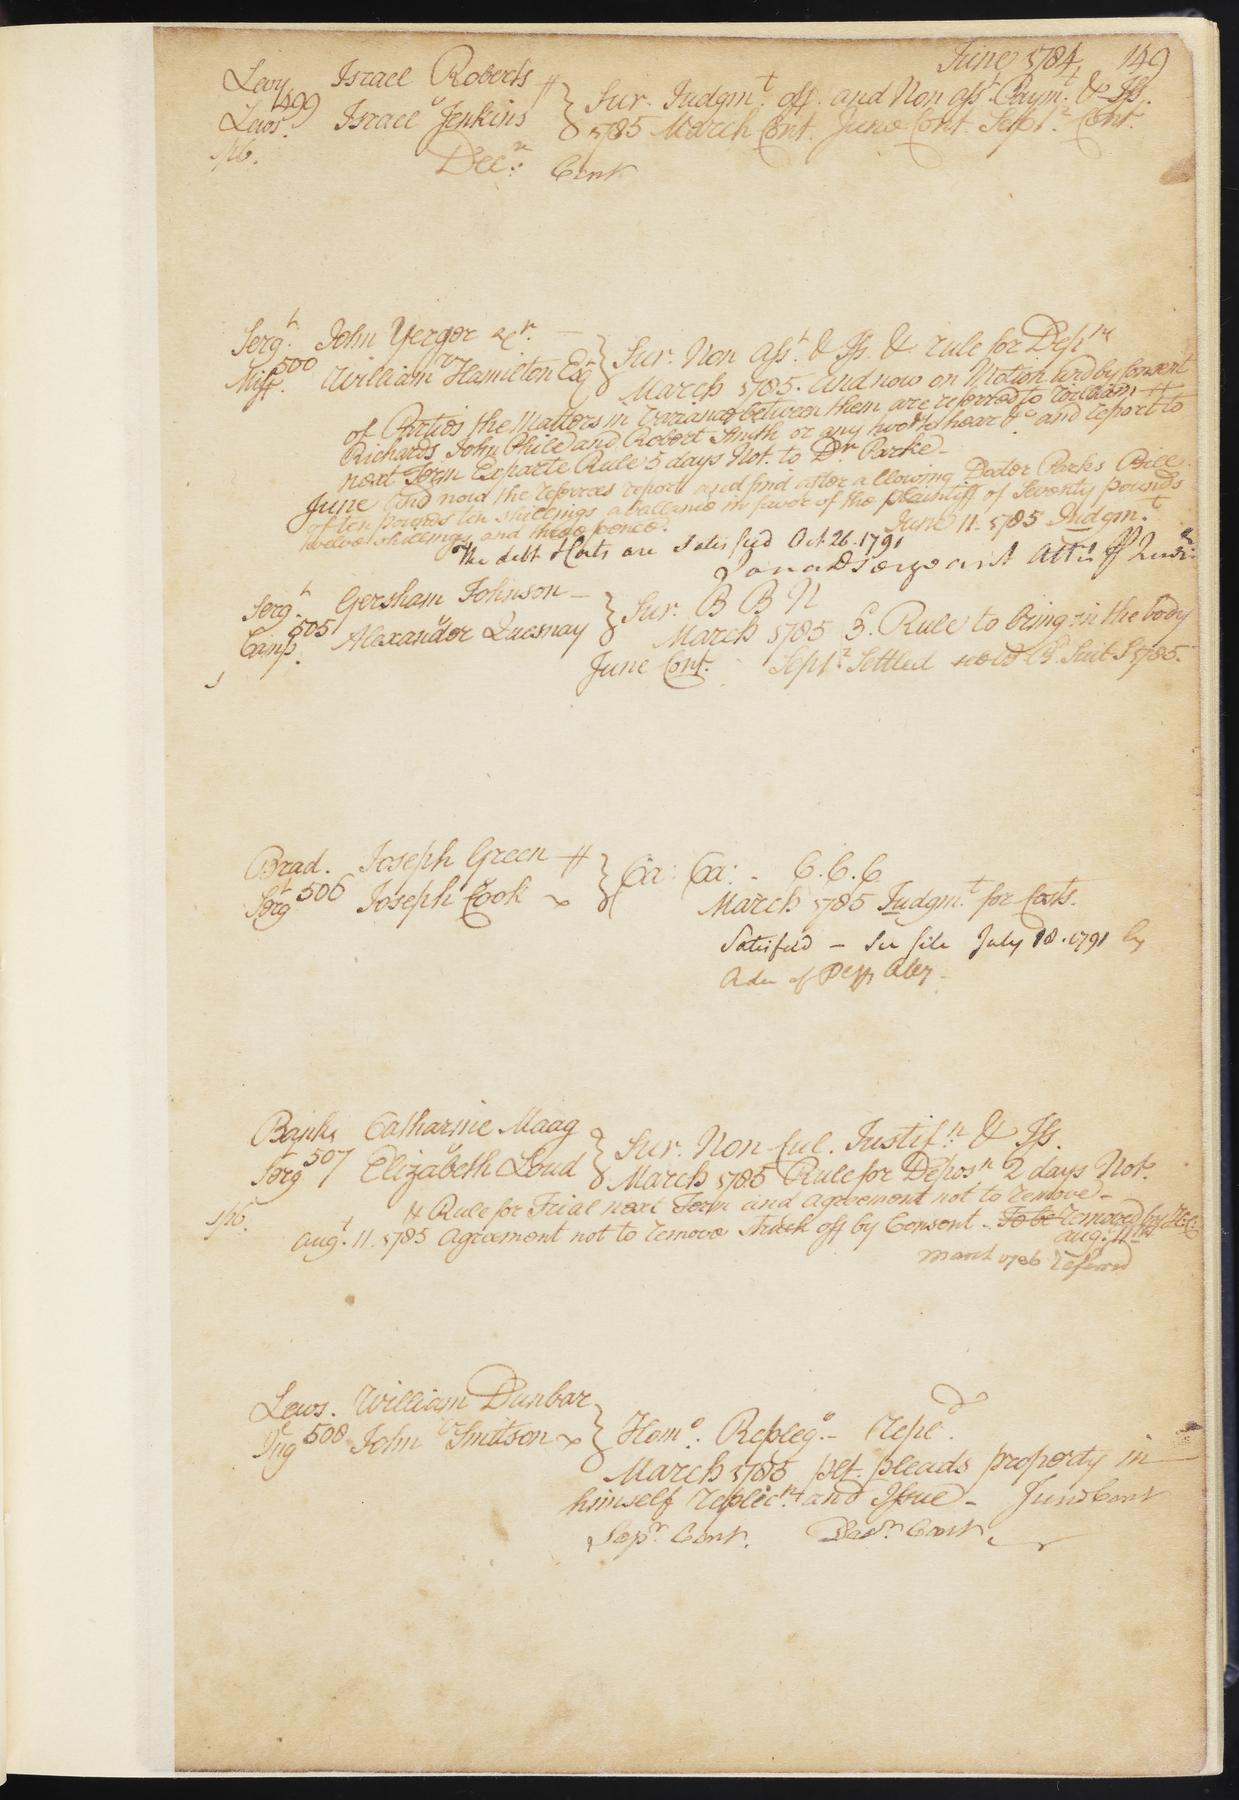 June 1784 149
Levy Israel Roberts
499 v
Lews. Israel Jenkins } Sur. Judgmt. off. and Non asst. Paymt. & Iss.
1785 March Cont. June Cont. Septr. Cont.
Decr. Cont
Sergt. John Yerger
500 v
Miff. William Hamilton Esqr } Sur. Non Asst. & Iss. & rule for Depn
March 1785. And now on Motion and by Consent
of Parties the Matters in Variance between them are referred to
Richards John Phile and Robert Smith or any two to hear &c and report to
next Term Exparte Rule 5 days Not. to Dr Parke -
June And now the referrees report and find after allowing Doctor Parks Bill
of ten pounds ten shillings a ballance in favor of the plaintiff of Seventy pounds
twelve shillings and three pence. June 11. 1785 Judgm.t
The debt & Costs are satisfied Oct 26. 1791
Sergeant Atty
Sergt. Gersham Johnson -
505 v
Camp. Alexander Quesnay } Sur. B B N
March 1785 Rule to bring in the body
June Cont. Septr Settled
Brad. Joseph Green
506 v
Sergt Joseph Cook } Ca: Ca: - C. C. C
March 1785 Judgm.t for Costs.
Satisfied - See file July 18. 1791 by
of
Banks Catharine Maag
507 v
Serg Elizabeth Loud } Sur. Non Cul. Justifn & Iss.
March 1785 Rule for Deposn 2 days Not.
Rule for Trial next Term and agreement not to remove -
Augt. 11. 1785 Agreement not to remove struck off by Consent - To be removed by
Aug. 11th
March 1786 referred
Lews. William Dunbar
508 v
Ing John Smitson } Homo. Repleg. - repld.
March 1785 pleads property in
himself replicn. and Issue - June Cont
Sepr. Cont. Decr. Cont.